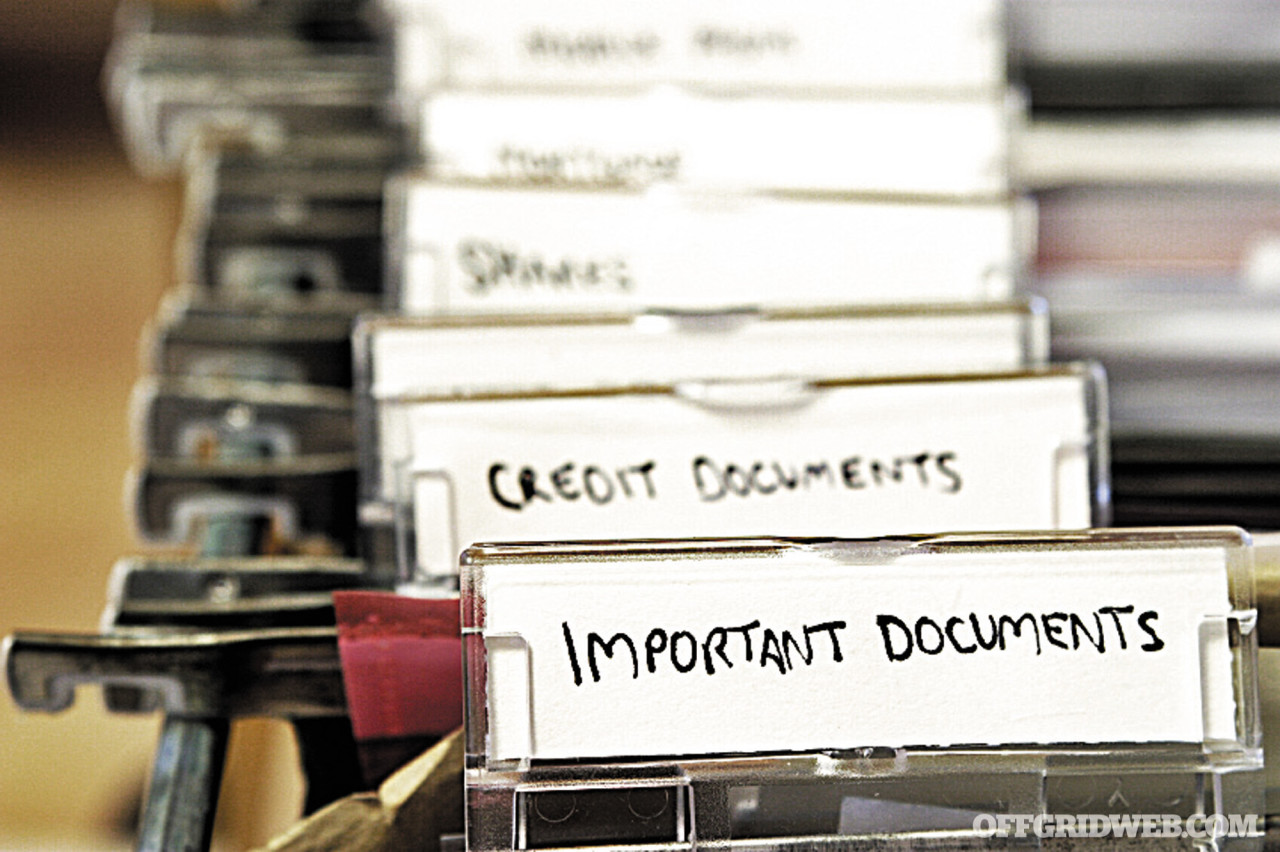 SHARES
CREDIT DOCUMENTS
IMPORTANT DOCUMENTS
OFFGRIDWEB.COM